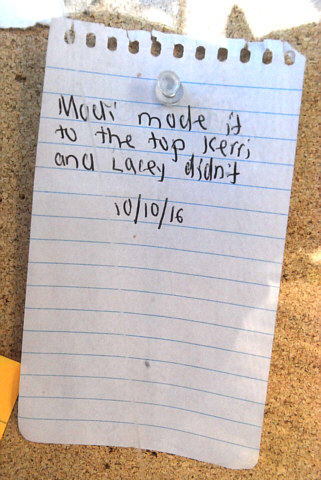 Madi made it
to the top Kerri
and Lacey didn't
10/10/16